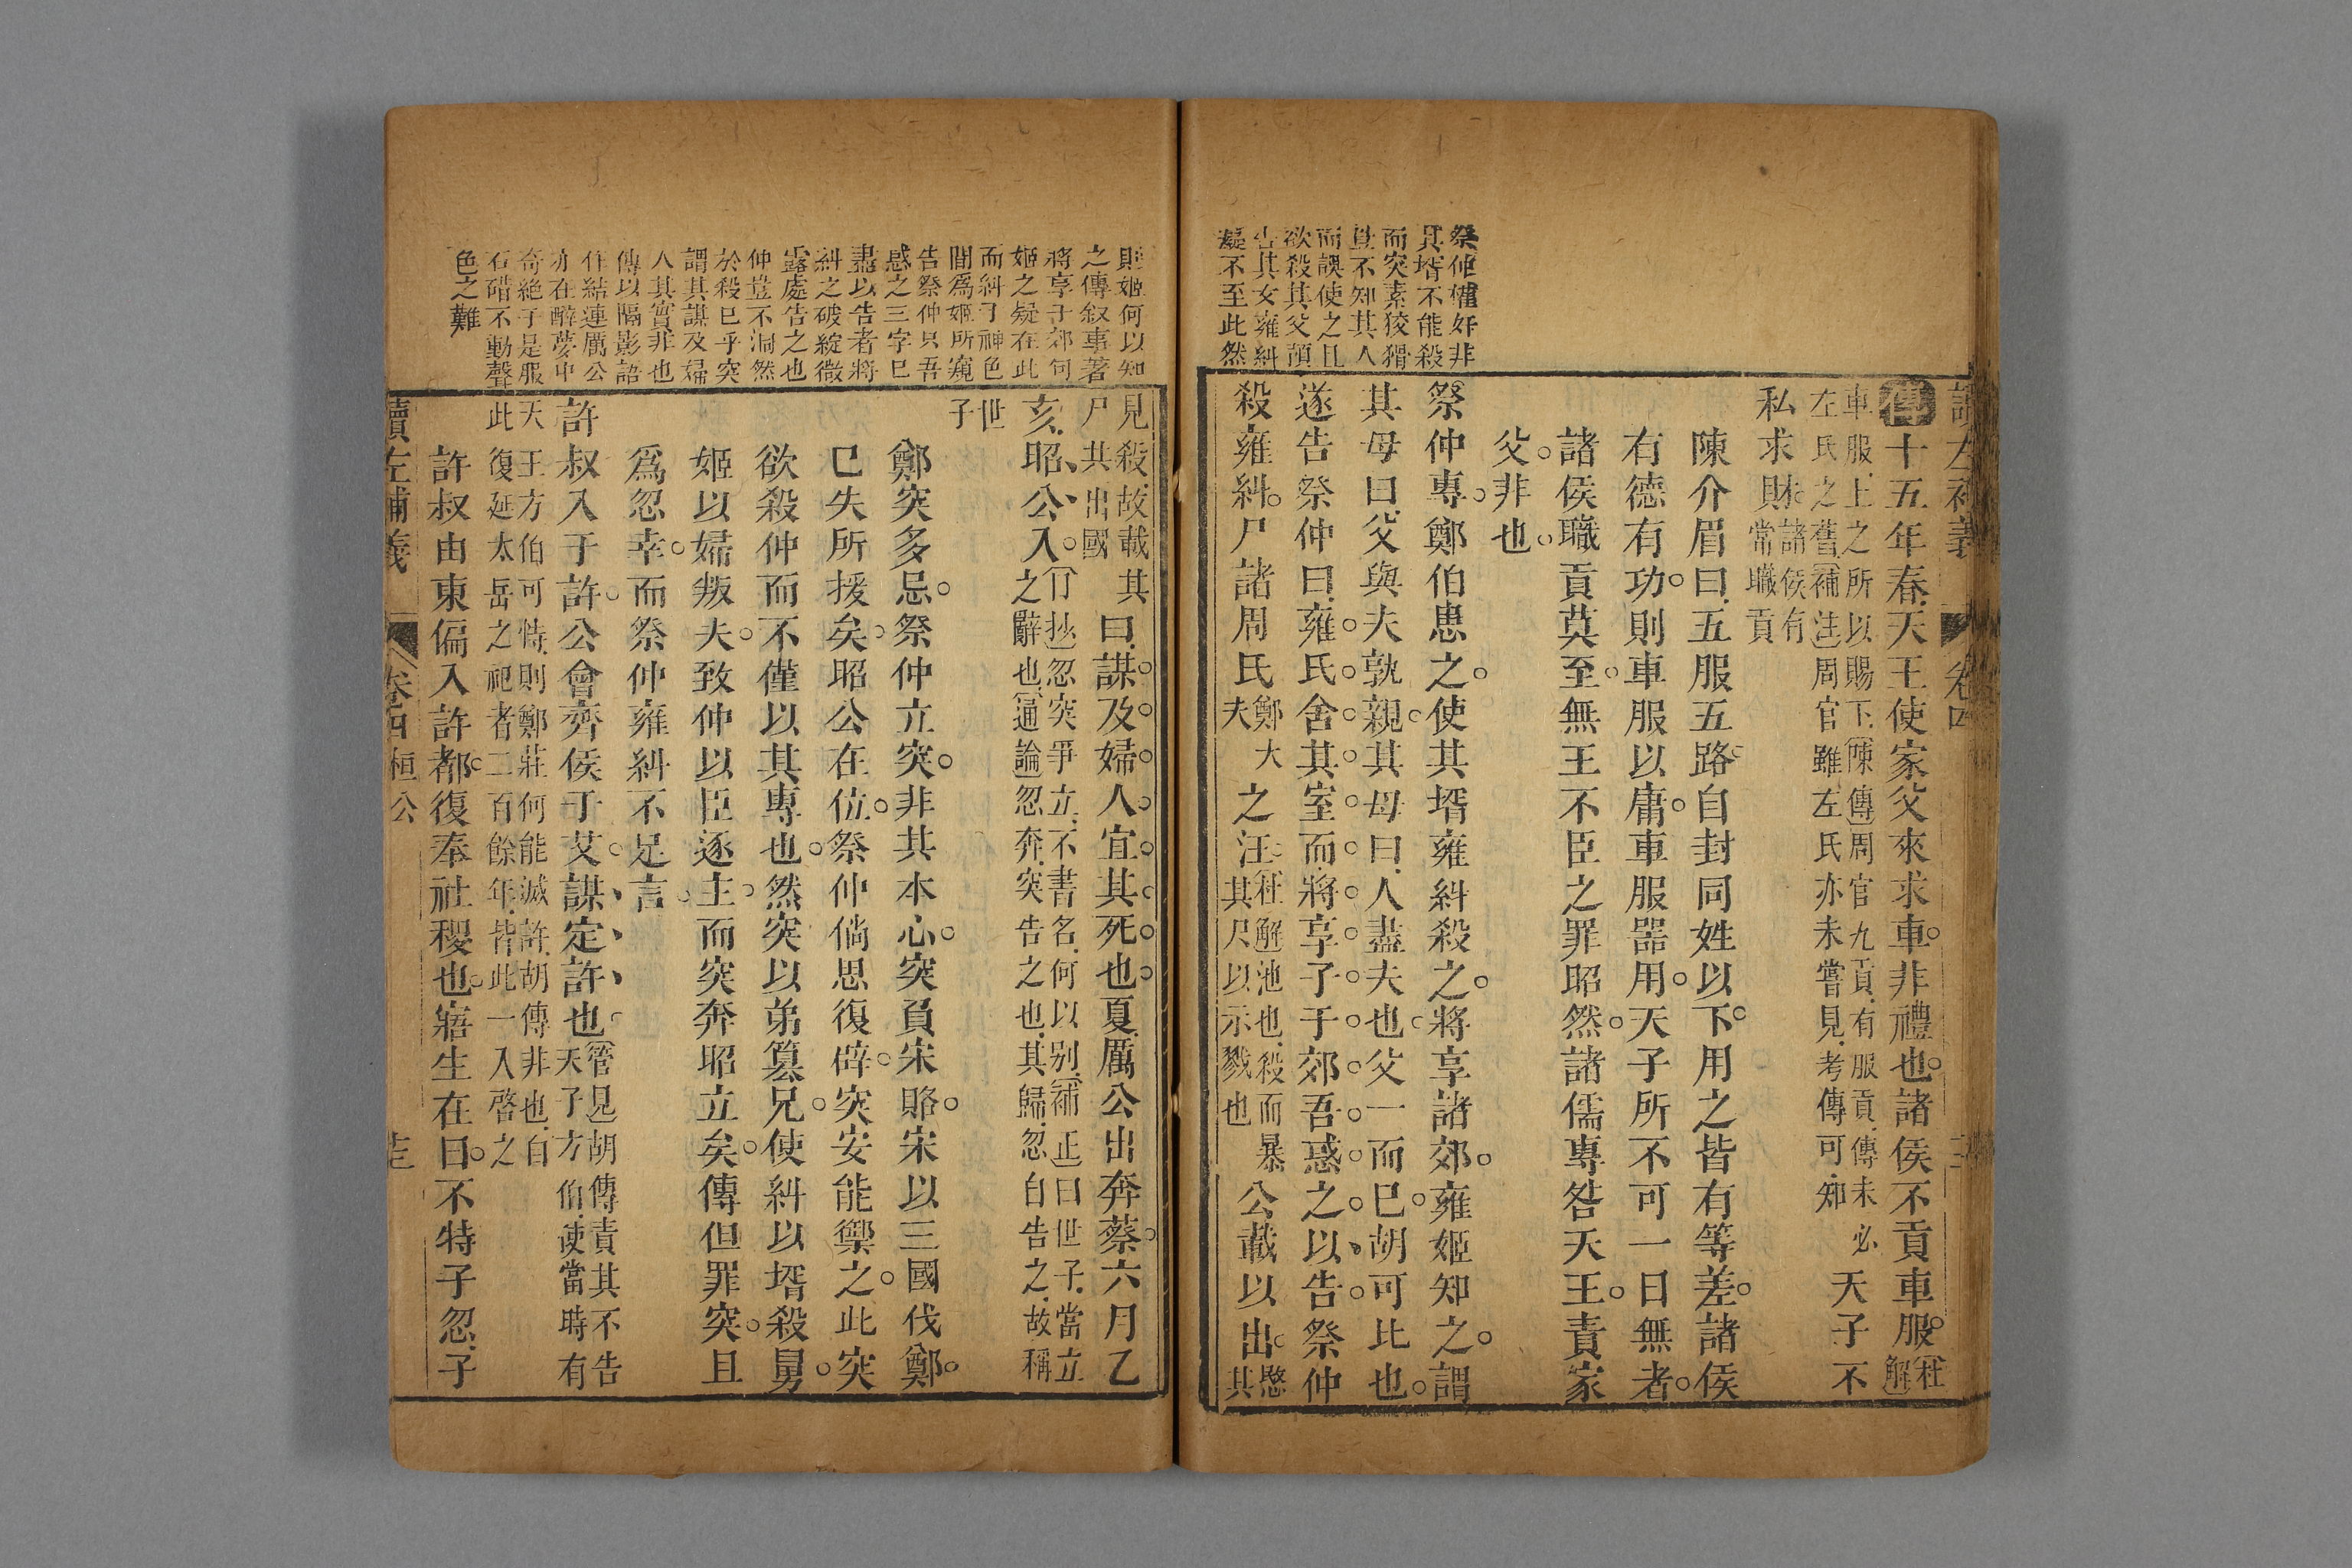 讀左補義
卷四
傳十五年春天王使家父來求車非禮也諸侯不貢車服杜解
車服上之所以賜下陳傳周官九貢有服貢傳未必
左氏之舊補注周官雖左氏亦未嘗見考傳可知
天子不
私求財諸侯有
常職貢
陳介眉曰五服五路自封同姓以下用之皆有等差諸侯
有德有功則車服以庸車服器用天子所不可一日無者
諸侯職貢莫至無王不臣之罪昭然諸儒專咎天王責家
父非也
祭仲專鄭伯患之使其壻雍糾殺之將享諸郊雍姬知之謂
其母曰父與夫孰親其母曰人盡夫也父一而已胡可比也
遂告祭仲曰雍氏舍其室而將享子于郊吾惑之以告祭仲
殺雍糾尸諸周氏鄭大
夫之汪杜解池也殺而暴
其尸以示戮也公載以出愍其
祭仲權奸非
其壻不能殺
而突素狡猾
豈不知其人
而誤使之且
欲殺其父預
告其女雍糾
癡不至此然
則姬何以知
之傳敘事著
將享于郊句
姬之疑在此
而糾于神色
間爲姬所窺
告祭仲只吾
惑之三字已
盡以告者將
糾之破綻微
露處告之也
仲豈不洞然
於殺已乎突
謂其謀及婦
人其實非也
傳以隔影語
作結連厲公
亦在醉夢中
奇絕于是服
石碏不動聲
色之難
見殺故載其
尸共出國曰謀及婦人宜其死也夏厲公出奔蔡六月乙
亥昭公入丁抄忽突爭立不書名何以别補正曰世子當立
之辭也通論忽奔突告之也其歸忽自告之故稱
世
子
鄭突多忌祭仲立突非其本心突負宋賂宋以三國伐鄭
已失所援矣昭公在位祭仲倘思復辟突安能禦之此突
欲殺仲而不僅以其專也然突以弟簒兄使糾以壻殺舅
姬以婦叛夫致仲以臣逐主而突奔昭立矣傳但罪突且
爲忽幸而祭仲雍糾不足言
許叔入于許公會齊侯于艾謀定許也管見胡傳責其不告
天子方伯使當時有
天王方伯可恃則鄭莊何能滅許胡傳非也自
此復延太岳之祀者二百餘年皆此一入啓之
許叔由東偏入許都復奉社稷也寤生在日不特子忽子
讀左補義
卷四 桓公